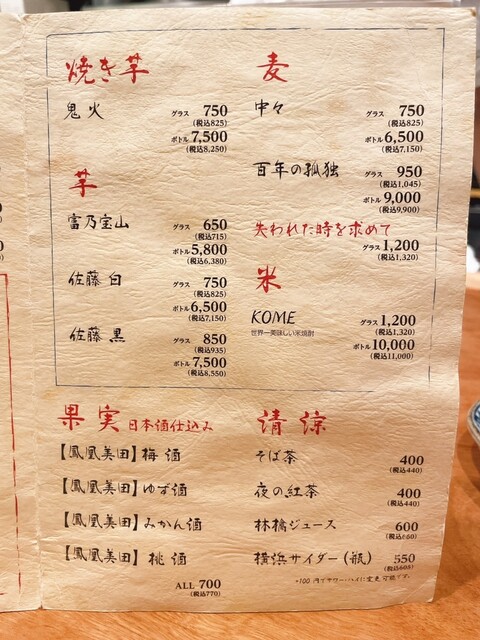 焼き芋
鬼火 グラス 750
(税込825)
ボトル 7,500
(税込8,250)
芋
富乃宝山 グラス 650
(税込715)
ボトル 5,800
(税込6,380)
佐藤 白 グラス 750
(税込825)
ボトル 6,500
(税込7,150)
佐藤 黒 グラス 850
(税込935)
ボトル 7,500
(税込8,550)
麦
中々 グラス 750
(税込825)
ボトル 6,500
(税込7,150)
百年の孤独 グラス 950
(税込1,045)
ボトル 9,000
(税込9,900)
失われた時を求めて
グラス 1,200
(税込1,320)
米
KOME グラス 1,200
世界一美味しい米焼酎 (税込1,320)
ボトル 10,000
(税込11,000)
果実 日本酒仕込み
【鳳凰美田】梅酒
【鳳凰美田】ゆず酒
【鳳凰美田】みかん酒
【鳳凰美田】桃酒
ALL 700
(税込770)
清涼
そば茶 400
(税込440)
夜の紅茶 400
(税込440)
林檎ジュース 600
(税込660)
横浜サイダー(瓶) 550
(税込605)
*100円でサワー・ハイに変更可能です。